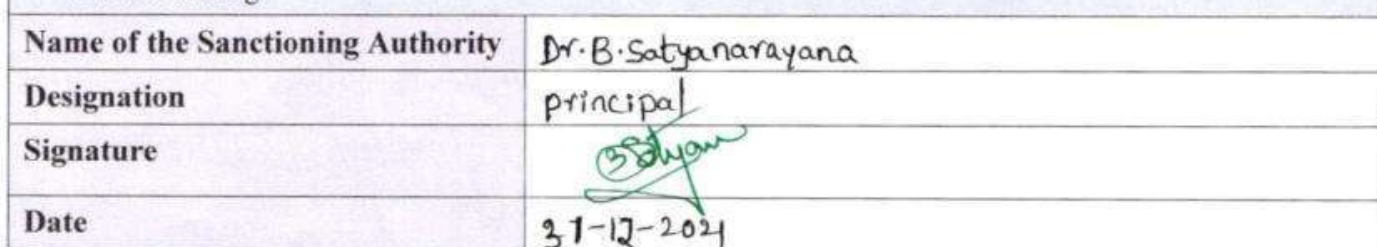 Name of the Sanctioning Authority Dr. B. Satyanarayana
Designation principal
Signature
Date 31-12-2021